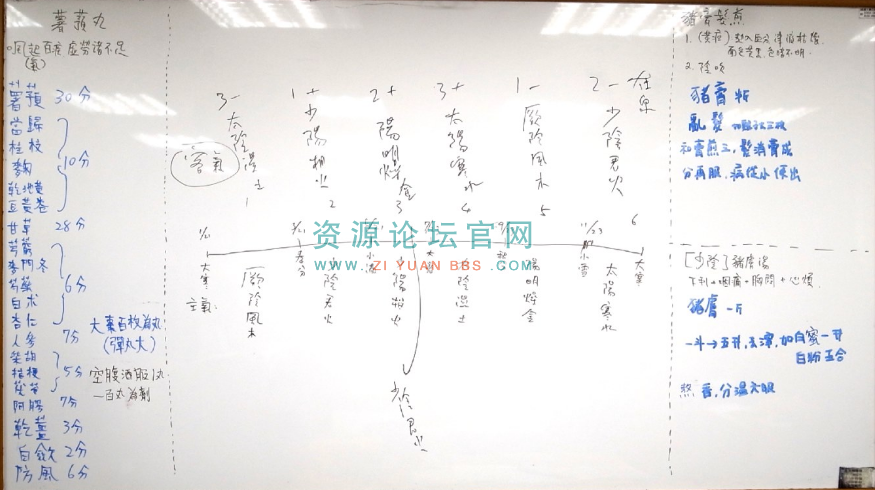 薯蕷丸
風起百疾虛勞諸不足
(氣)
薯蕷 30分
當歸
桂枝
麥麴 10分
乾地黃
豆黃卷
甘草 28分
芎藭
麥門冬
芍藥 6分
白朮
杏仁
人參 7分
柴胡
桔梗 5分
茯苓
阿膠 7分
乾薑 3分
白斂 2分
防風 6分
大棗百枚為丸
(彈丸大)
空腹酒服1丸
一百丸為劑
3- 太陰濕土 1
1+ 少陽相火 2
2+ 陽明燥金 3
3+ 太陽寒水 4
1- 厥陰風木 5
2- 少陰君火 6
在泉
客氣
大寒
春分
小滿
大暑
小雪
大寒
主氣
厥陰風木
少陰君火
少陽相火
太陰濕土
陽明燥金
太陽寒水
少陰君火
豬膏髮煎
1. (黃疸)
2. 陰吹
豬膏半斤
亂髮
和膏煎之,髮消膏成
分再服,病從小便出
[少陰] 豬膚湯
下利+咽痛+胸悶+心煩
豬膚一斤
一斗→五升,去滓,加白蜜一升
白粉五合
熬香,分溫六服
资源论坛官网
www.ZIYUANBBS.COM